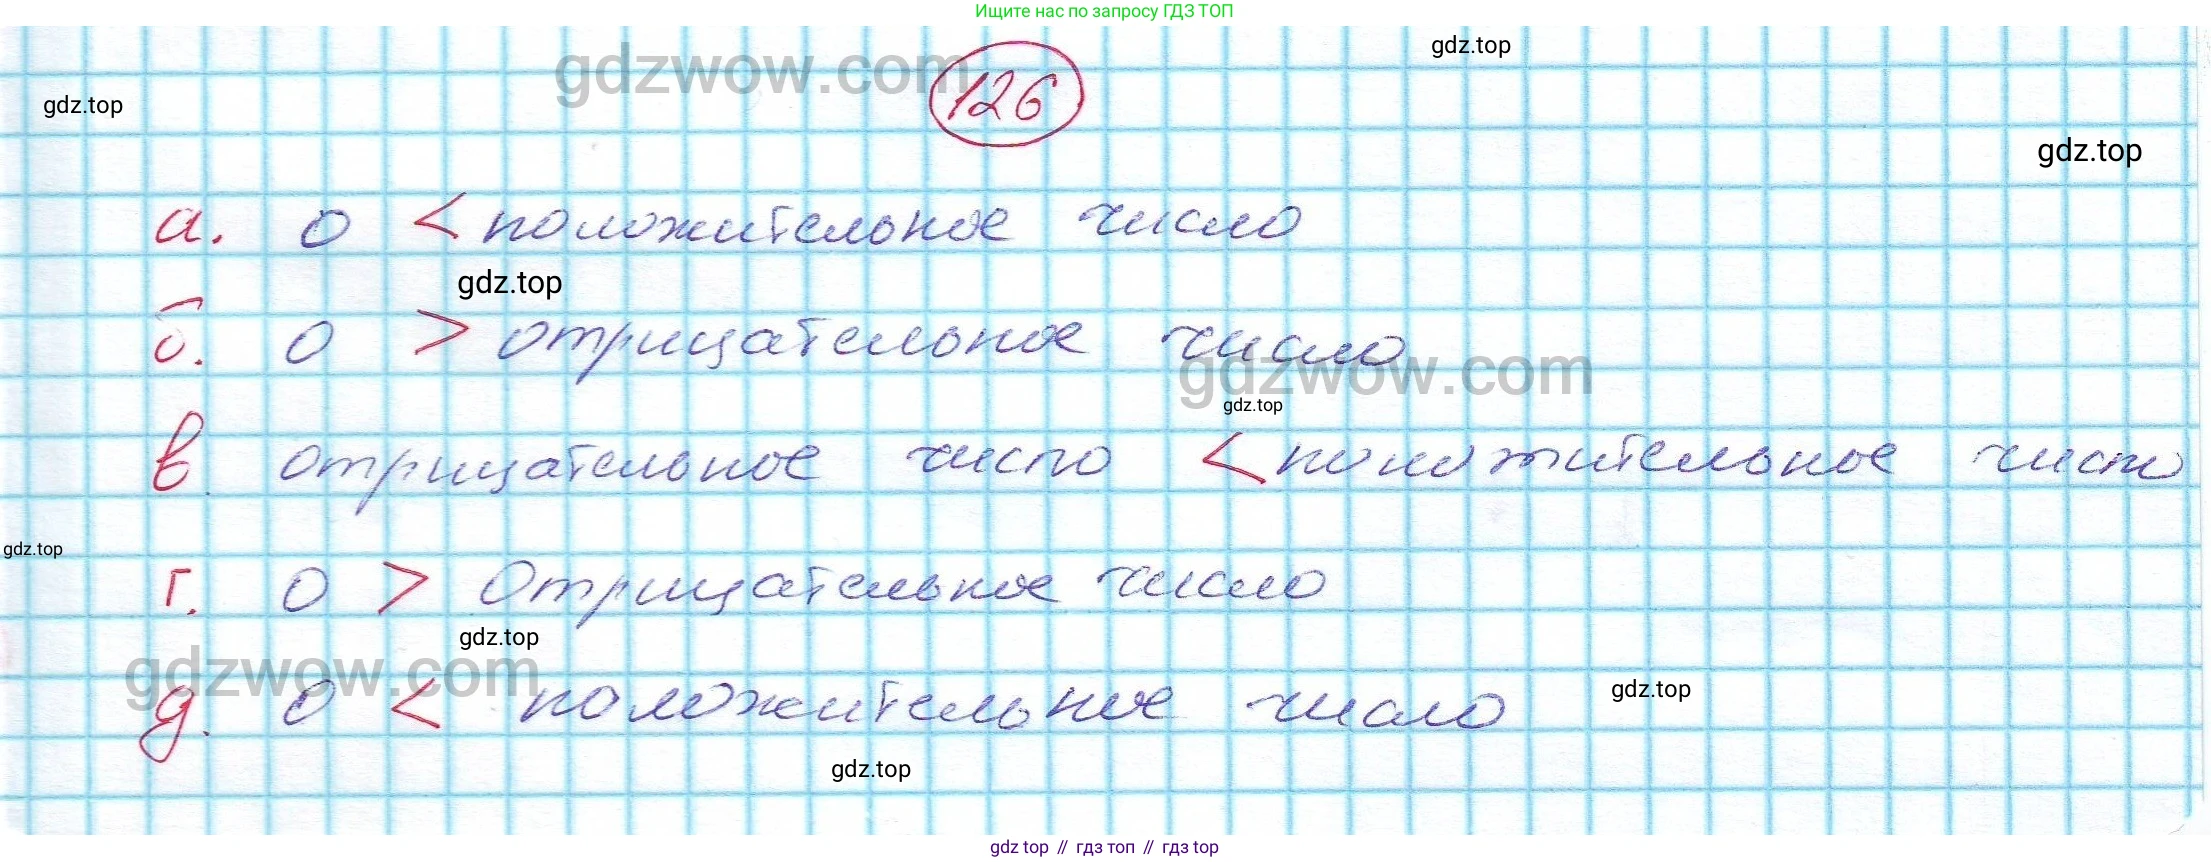 Ищите нас по запросу ГДЗ ТОП
gdzwow.com
gdz.top
126
gdz.top
gdz.top
а. 0 < положительное число
gdz.top
б. 0 > отрицательное число
gdzwow.com
gdz.top
в. отрицательное число < положительное число
gdz.top
г. 0 > отрицательное число
gdz.top
gdzwow.com
д. 0 < положительное число
gdz.top
gdz.top
gdz top // гдз топ // гдз top